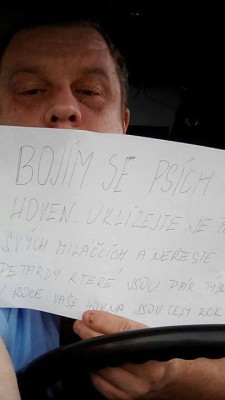 BOJÍM SE PSÍCH
HOVEN. UKLÍZEJTE JE PO
SVÝCH MILÁČCÍCH A NEŘEŠTE
PETARDY KTERÉ JSOU PÁR
V ROCE VAŠE HOVNA JSOU CELÝ ROK